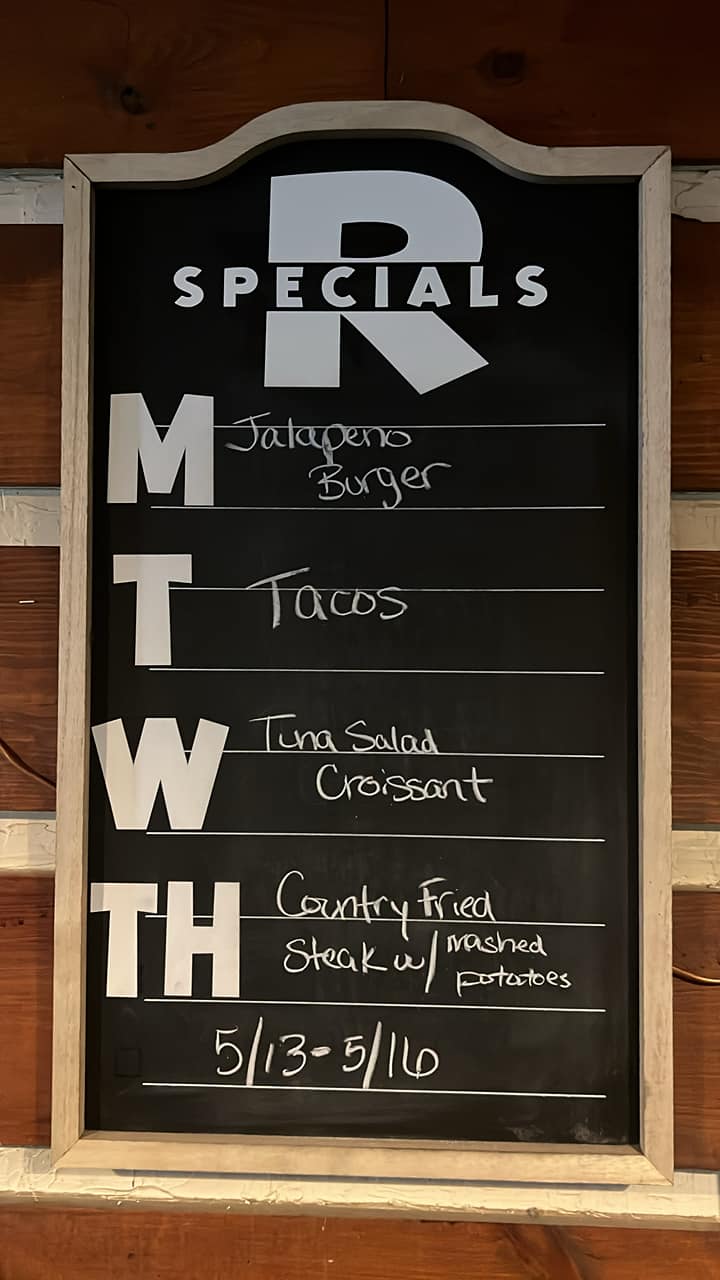 R
SPECIALS
M Jalapeno
Burger
T Tacos
W Tuna Salad
Croissant
TH Country Fried
Steak w/ mashed
potatoes
5/13-5/16